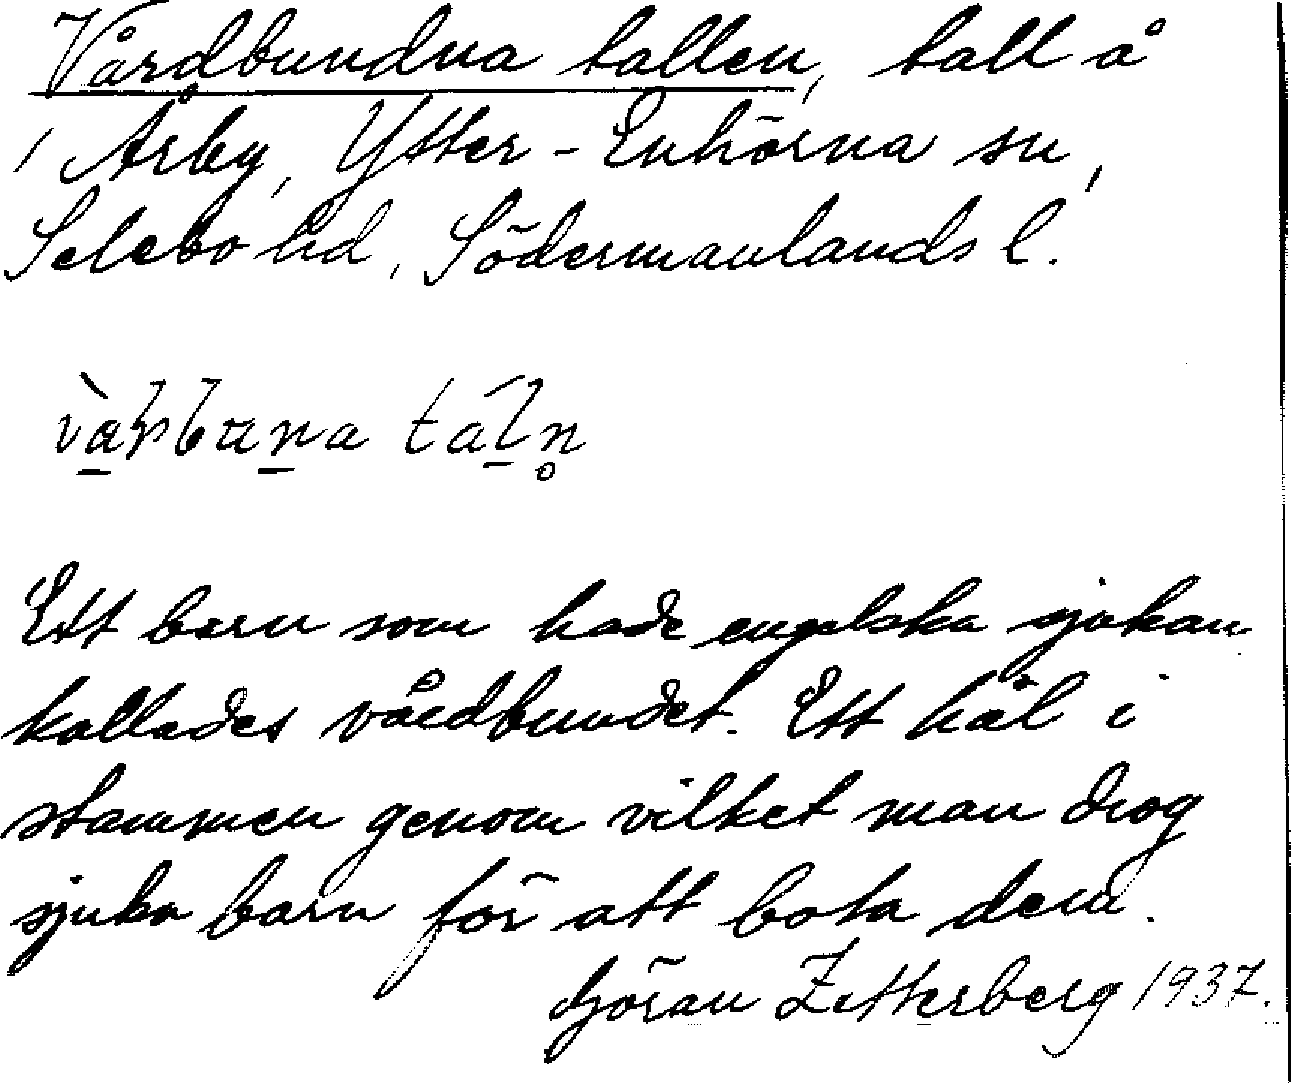 Vårdbundna tallen, tall å
Årby, Ytter-Enhörna sn,
Selebo hd, Södermanlands l.
Ett barn som hade engelska sjukan
kallades vårdbundet. Ett hål i
stammen genom vilket man drog
sjuka barn för att bota dem.
Göran Zetterberg 1937.